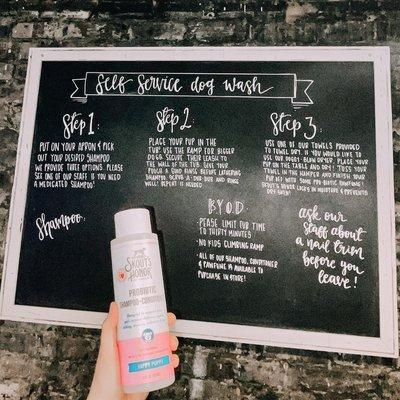 Self Service dog wash
Step 1:
PUT ON YOUR APRON & PICK
OUT YOUR DESIRED SHAMPOO.
WE PROVIDE THREE OPTIONS. PLEASE
ASK ONE OF OUR STAFF IF YOU NEED
A MEDICATED SHAMPOO!
Step 2:
PLACE YOUR PUP IN THE
TUB! USE THE RAMP FOR BIGGER
DOGS. SECURE THEIR LEASH TO
THE WALL OF THE TUB. GIVE YOUR
POOCH A GOOD RINSE BEFORE LATHERING
WELL! REPEAT IF NEEDED!
Step 3:
USE ONE OF OUR TOWELS PROVIDED
TO TOWEL DRY. IF YOU WOULD LIKE TO
USE OUR DOGGY BLOW DRYER, PLACE YOUR
PUP ON THE TABLE AND DRY! TOSS YOUR
TOWEL IN THE HAMPER AND FINISH YOUR
PUP OFF WITH SOME PROBIOTIC
SCOUT'S HONOR LOCKS IN MOISTURE & PREVENTS
Shampoo:
B.Y.O.D.
· PLEASE LIMIT TUB TIME
TO THIRTY MINUTES
· NO KIDS CLIMBING RAMP
· ALL OF OUR SHAMPOO, CONDITIONER
& PAWFUME IS AVAILABLE TO
PURCHASE IN STORE!
ask our
staff about
a nail trim
before you
leave!
SKOUT'S
HONOR
PROBIOTIC
SHAMPOO+CONDITIONER
HAPPY PUPPY